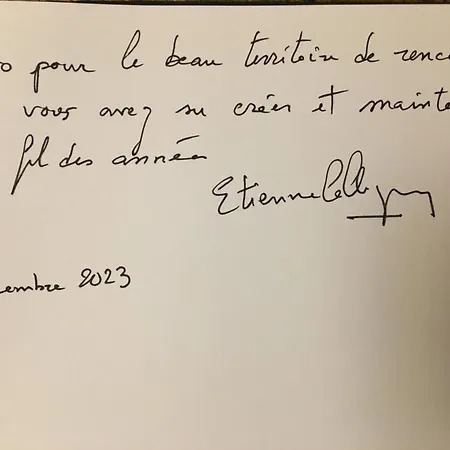 o pour le beau territoire de renc
vous avez su créer et mainte
fil des années
Etienne
embre 2023